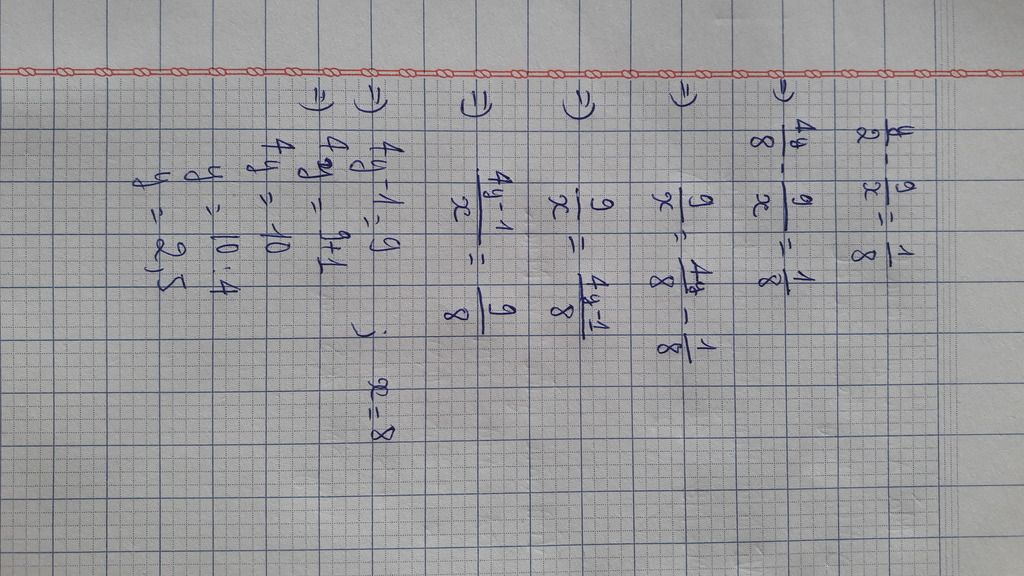 y/2 - 9/x = 1/8
=) 4y/8 - 9/x = 1/8
=) 9/x = 4y/8 - 1/8
=) 9/x = 4y-1/8
=) 4y-1/x = 9/8
=) 4y-1 = 9 ; x = 8
=) 4y = 9+1
4y = 10
y = 10.4
y = 2,5